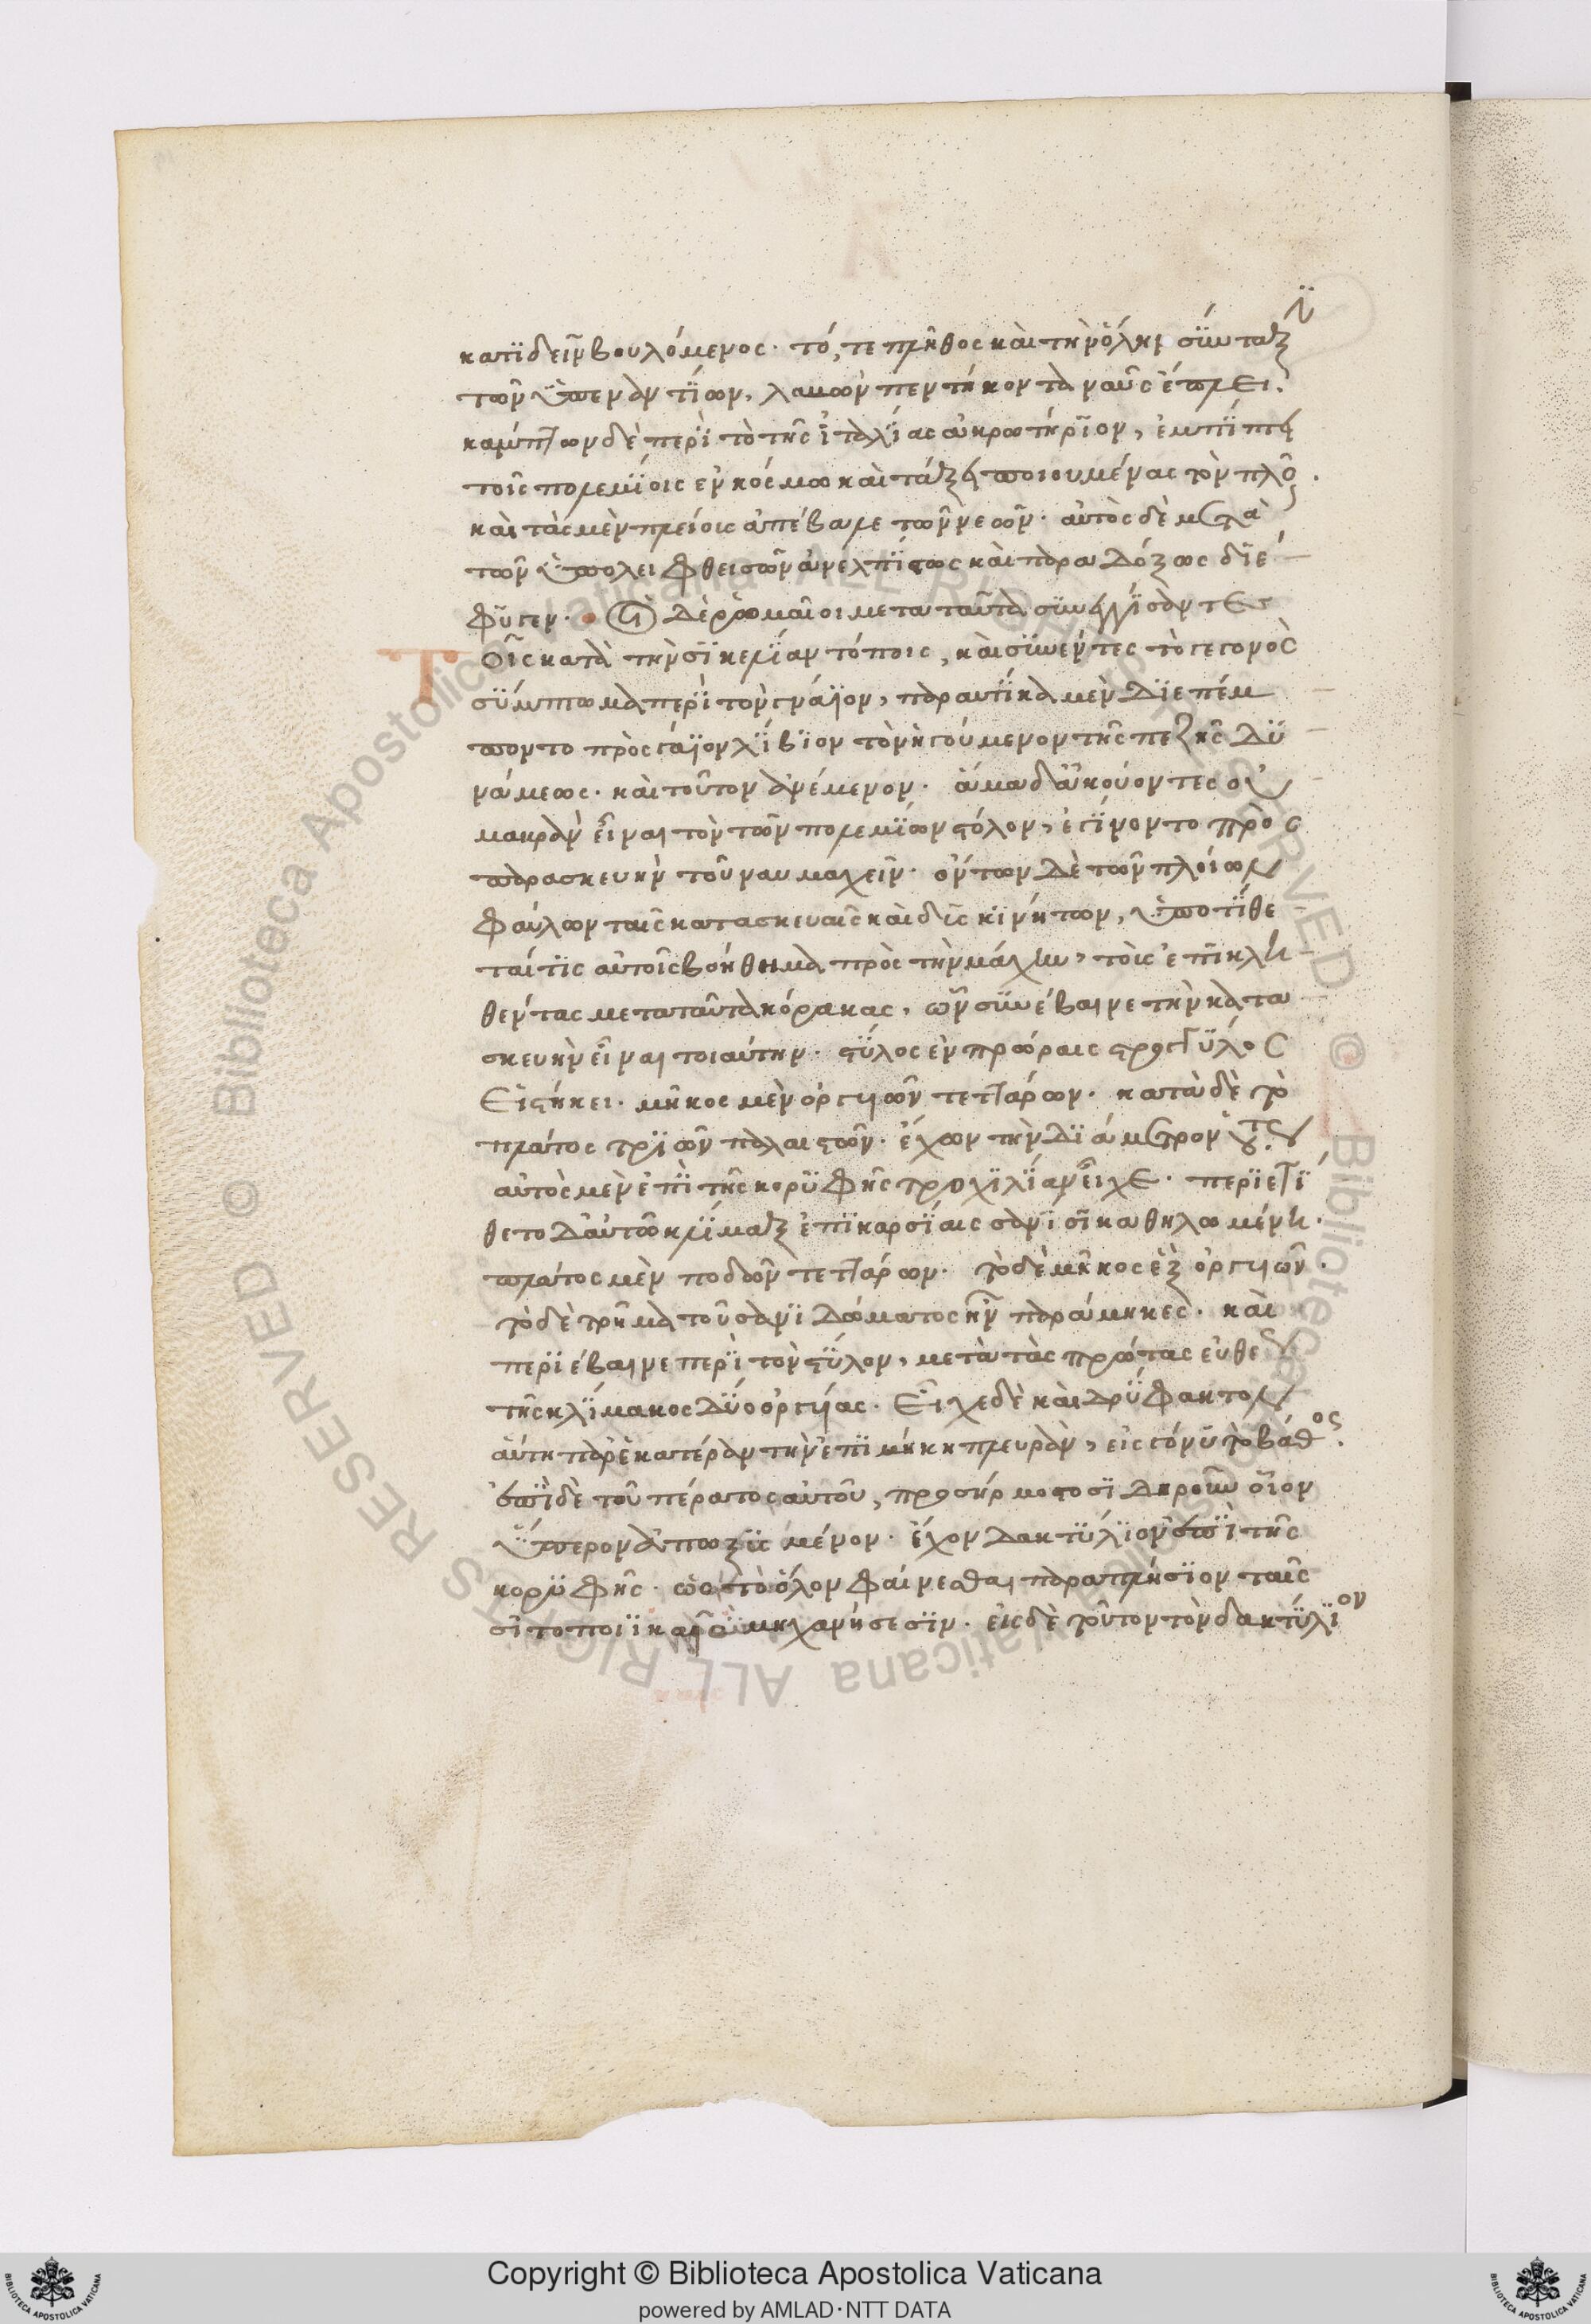 κατϊδεῖν βουλόμενος· τό, τε πλῆθος καὶ τὴν ὅλην σύνταξϊν
τῶν ὑπεναντΐων, λαβὼν πεντήκοντα ναῦς ἔπλει·
κάμπτων δὲ περὶ τὸ τῆς ἰταλΐας ἀκρωτήρϊον, ἐμπΐπτει
τοῖς πολεμΐοις ἐν κόσμω καὶ τάξει ποιουμένας τὸν πλοῦν.
καὶ τὰς μὲν πλείους ἀπέβαλε τῶν νεῶν· αὐτὸς δὲ μετὰ
τῶν ὑπολειφθεισῶν ἀνελπΐστως καὶ παραδόξως δϊέ
φυγεν· οἱ δὲ ῥωμαῖοι μετα ταῦτα συνεγγΐσαντες
Τοῖς κατὰ τὴν σϊκελΐαν τόποις, καὶ συνέντες τὸ γεγονὸς
σύμπτωμα περὶ τὸν γνάϊον, παραυτΐκα μὲν δϊεπέμ
ποντο πρὸς γάϊον λΐβϊον τὸν ἡγούμενον τῆς πεζῆς δϋ
νάμεως· καὶ τοῦτον ἀνέμενον· ἅμα δ' ἀκούοντες οὐ
μακρὰν εἶναι τὸν τῶν πολεμΐων στόλον, ἐγΐνοντο πρὸς
παρασκευὴν τοῦ ναυμαχεῖν· ὄντων δὲ τῶν πλοίων
φαύλων ταῖς κατασκευαῖς καὶ δυσκϊνήτων, ὑποτΐθε
ταί τϊς αὐτοῖς βοήθημα πρὸς τὴν μάχην, τοὺς ἐπϊκλη
θέντας μετα ταῦτα κόρακας, ὧν συνέβαινε τὴν κατα
σκευὴν εἶναι τοιαύτην· στύλος ἐν πρώραις στρογγύλος
Εἱστήκει· μῆκος μὲν ὀργυιῶν τεττάρων· κατὰ δὲ τὸ
πλάτος τρϊῶν παλαιστῶν· ἔχων τὴν δϊάμετρον οὗτος
αὐτὸς μὲν ἐπὶ τῆς κορϋφῆς τροχϊλΐαν εἶχε· περϊετΐ
θετο δ' αὐτῶ κλΐμαξ ἐπϊκαρσΐαις σανΐσϊ καθηλωμένη·
πλάτος μὲν ποδῶν τεττάρων· τὸ δὲ μῆκος ἓξ ὀργυιῶν·
τὸ δὲ τρῆμα τοῦ σανϊδώματος ἦν παράμηκες· καὶ
περϊέβαινε περὶ τὸν στύλον, μετὰ τὰς πρώτας εὐθὺς
τῆς κλΐμακος δύο ὀργυιάς· Εἶχε δὲ καὶ δρύφακτον
αὕτη παρ' ἑκατέραν τὴν ἐπϊμήκη πλευρὰν, εἰς γόνυ τὸ βάθος·
ἐπὶ δὲ τοῦ πέρατος αὐτοῦ, προσήρμοστο σϊδηροῦν οἷον
ὕπερον ἀπωξϋσμένον· ἔχον δακτύλϊον ἐπὶ τῆς
κορϋφῆς· ὡς τὸ ὅλον φαίνεσθαι παραπλήσϊον ταῖς
σϊτοποιϊκαῖς μηχανήσεσϊν· εἰς δὲ τοῦτον τὸν δακτύλϊον
Copyright © Biblioteca Apostolica Vaticana
powered by AMLAD·NTT DATA